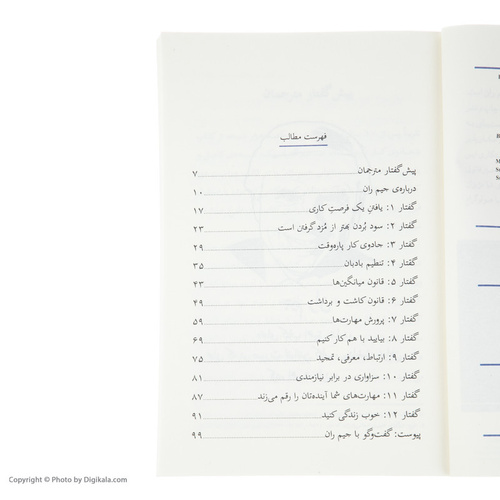 فهرست مطالب
پیش‌گفتار مترجمان ۷
درباره‌ی جیم ران ۱۰
گفتار ۱: یافتن یک فرصتِ کاری ۱۷
گفتار ۲: سود بُردن بهتر از مُزد گرفتن است ۲۳
گفتار ۳: جادوی کار پاره‌وقت ۲۹
گفتار ۴: تنظیم بادبان ۳۵
گفتار ۵: قانون میانگین‌ها ۴۳
گفتار ۶: قانون کاشت و برداشت ۴۹
گفتار ۷: پرورش مهارت‌ها ۵۹
گفتار ۸: بیایید با هم کار کنیم ۶۹
گفتار ۹: ارتباط، معرفی، تمجید ۷۵
گفتار ۱۰: سزاواری در برابر نیازمندی ۸۱
گفتار ۱۱: مهارت‌های شما آینده‌تان را رقم می‌زند ۸۷
گفتار ۱۲: خوب زندگی کنید ۹۱
پیوست: گفت‌وگو با جیم ران ۹۹
Copyright © Photo by Digikala.com